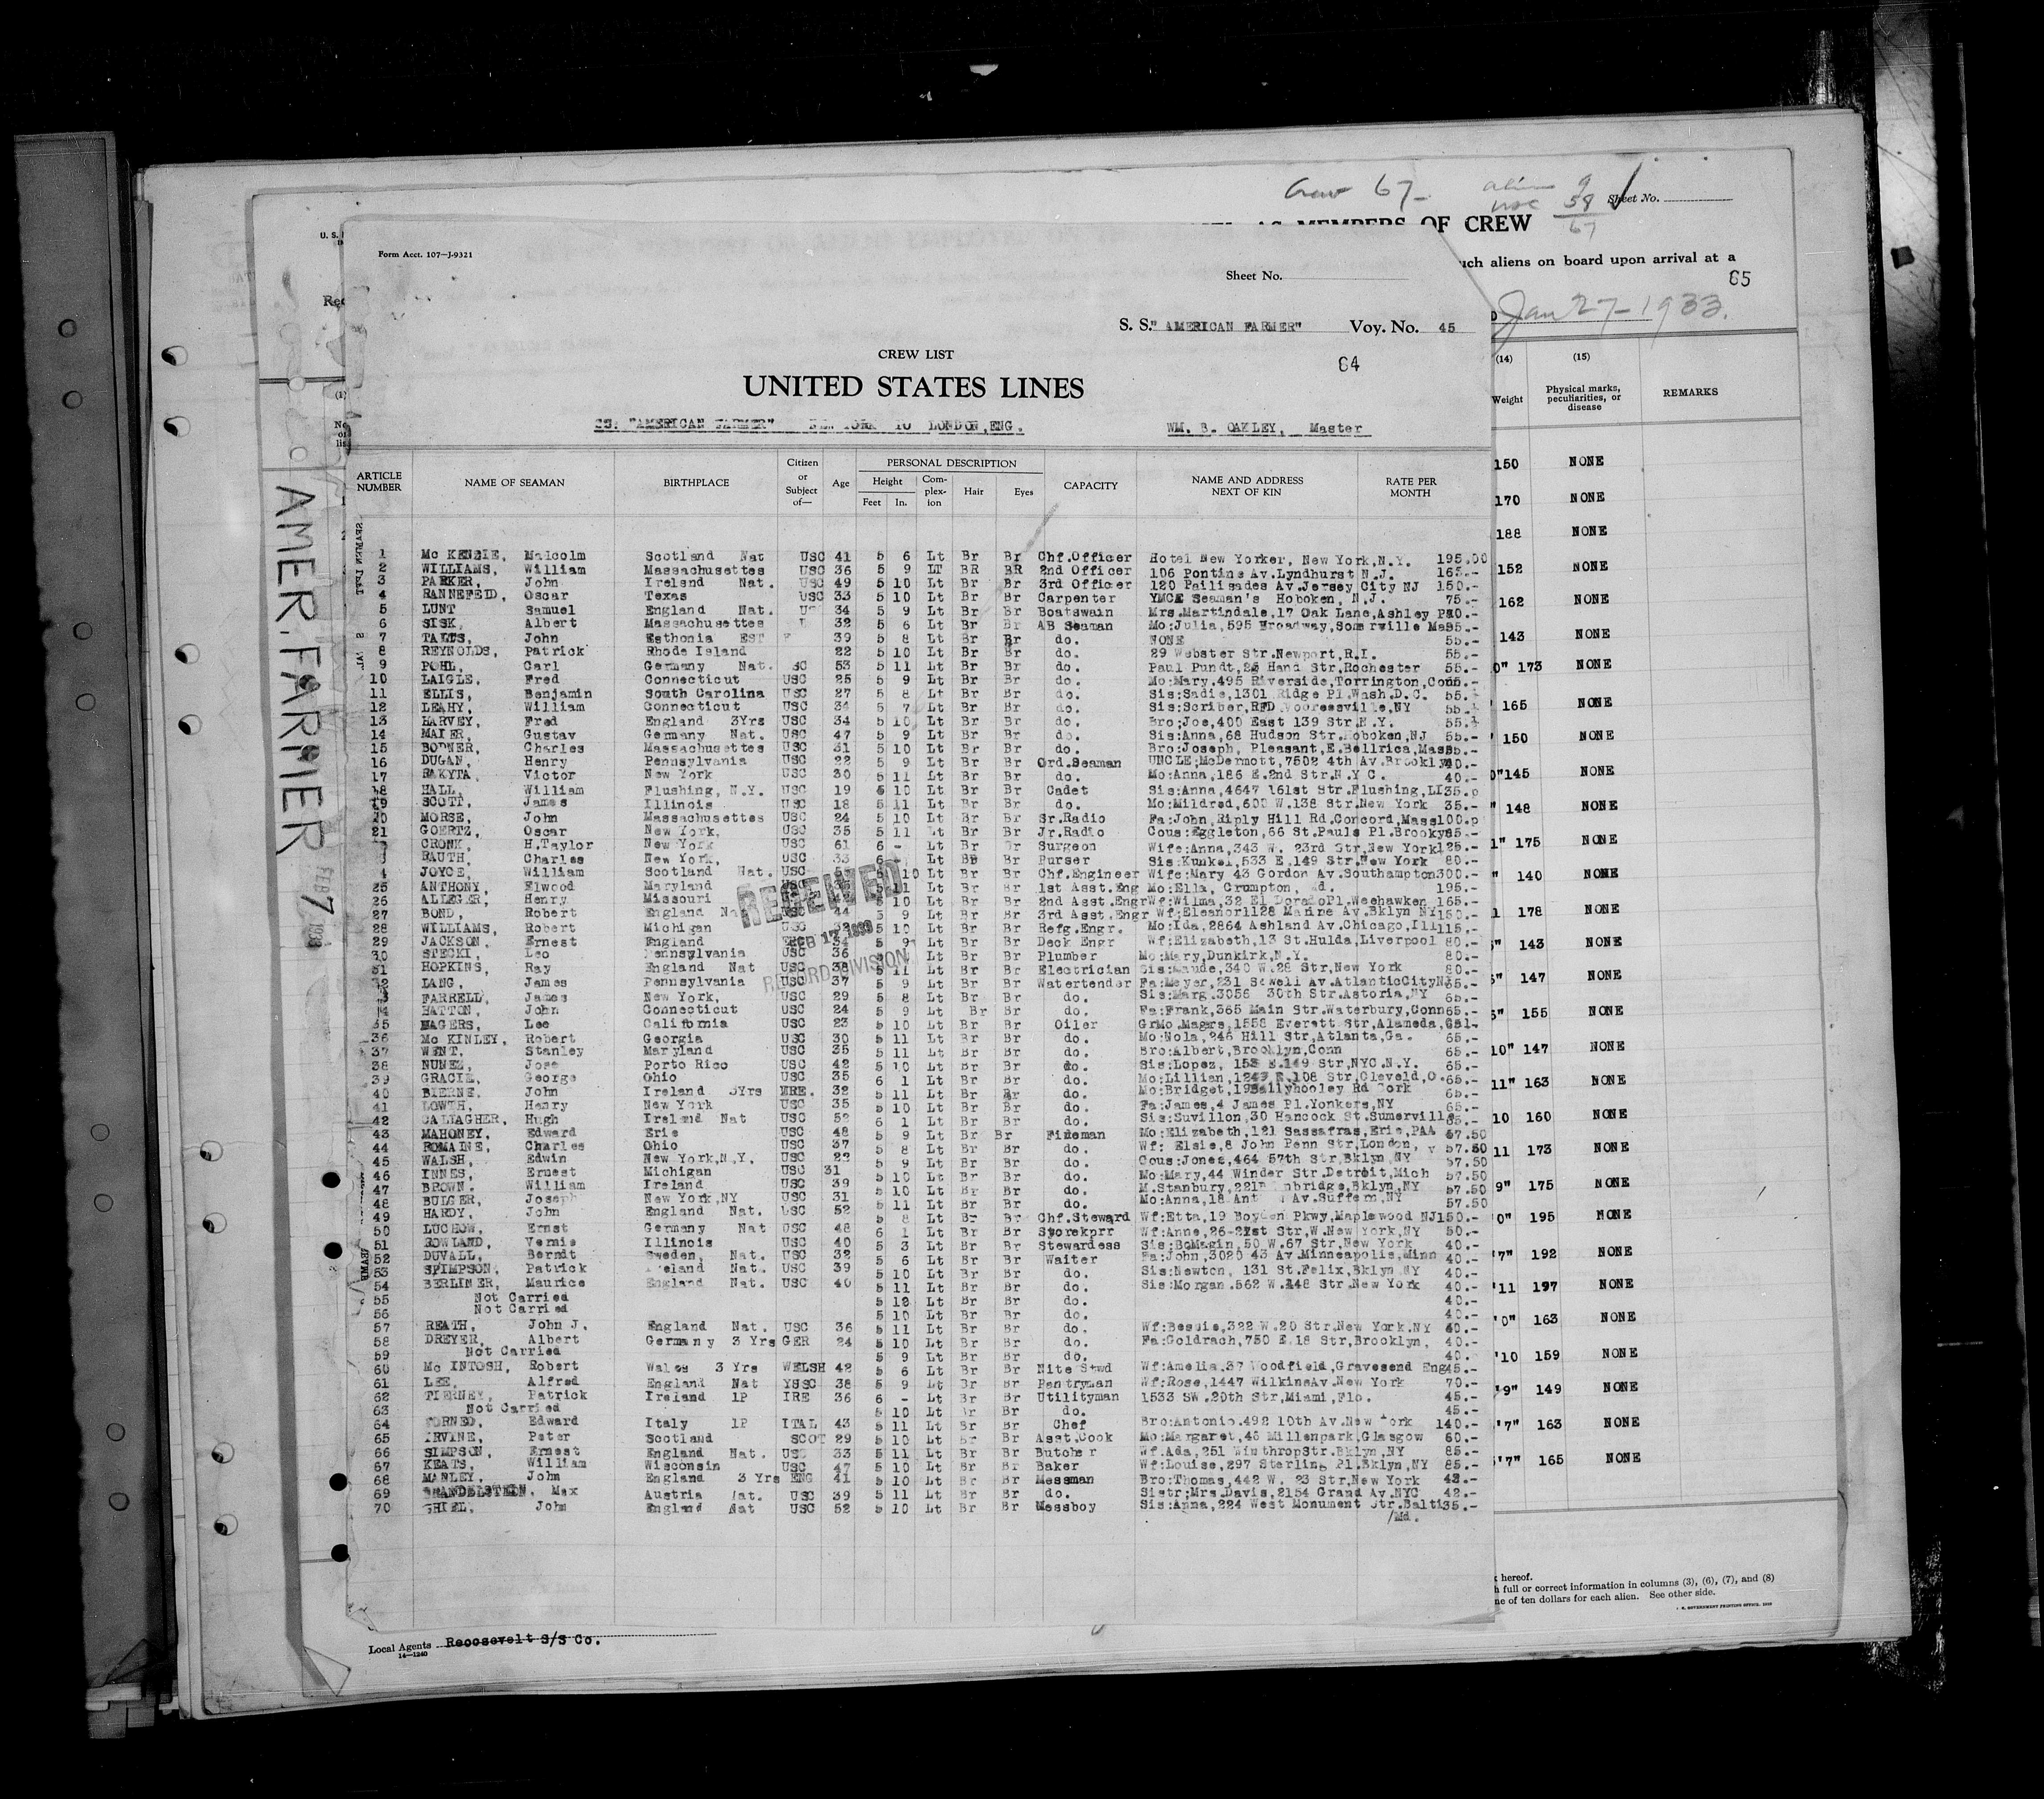 Crew 67-
alien 9
usc 58
67
Sheet No.
AS MEMBERS OF CREW
uch aliens on board upon arrival at a
65
Jan 27-1933.
U. S.
Form Acct. 107—J-9321
Sheet No.
S. S." AMERICAN FARMER" Voy. No. 45
64
CREW LIST
UNITED STATES LINES
SS. "AMERICAN FARMER" NEW YORK TO LONDON,ENG. WM. B. OAKLEY, Master
ARTICLE NUMBER NAME OF SEAMAN BIRTHPLACE Citizen or Subject of— Age PERSONAL DESCRIPTION Height Feet In. Com-plex-ion Hair Eyes CAPACITY NAME AND ADDRESS NEXT OF KIN RATE PER MONTH
(14) Weight (15) Physical marks, peculiarities, or disease REMARKS
AMER. FARMER
FEB 7 1933
1 Mc KENZIE, Malcolm Scotland Nat USC 41 5 6 Lt Br Br Chf.Officer Hotel New Yorker, New York,N.Y. 195.00
2 WILLIAMS, William Massachusettes USC 36 5 9 LT BR BR 2nd Officer 106 Pontine Av.Lyndhurst N.J. 165.-
3 PARKER, John Ireland Nat. USC 49 5 10 Lt Br Br 3rd Officer 120 Pailisades Av.Jersey City NJ 150.-
4 RANNEFELD, Oscar Texas USC 33 5 10 Lt Br Br Carpenter YMCA Seaman's Hoboken, N.J. 75.-
5 LUNT Samuel England Nat. 34 5 9 Lt Br Br Boatswain Mrs.Martindale,17 Oak Lane,Ashley
6 SISK, Albert Massachusettes 32 5 6 Lt Br Br AB Seaman Mo:Julia,595 Broadway,Somerville
7 TALTS, John Esthonia EST 39 5 8 Lt Br Br do. NONE 55.-
8 REYNOLDS, Patrick Rhode Island 22 5 10 Lt Br Br do. 29 Webster Str.Newport,R.I. 55.-
9 POHL, Carl Germany Nat. SC 53 5 11 Lt Br Br do. Paul Pundt,26 Hand Str,Rochester 55.-
10 LAIGLE, Fred Connecticut USC 25 5 9 Lt Br Br do. Mo:Mary.495 Riverside,Torrington,
11 ELLIS, Benjamin South Carolina USC 27 5 8 Lt Br Br do. Sis:Sadie,1301 Ridge Pl.Wash.D.C. 55.-
12 LEAHY, William Connecticut USC 34 5 7 Lt Br Br do. Sis:Scriber,RFD Mooresville,NY 55.-
13 HARVEY, Fred England 3Yrs USC 34 5 10 Lt Br Br do. Bro:Joe,400 East 139 Str.N.Y. 55.-
14 MAIER, Gustav Germany Nat. USC 47 5 9 Lt Br Br do. Sis:Anna,68 Hudson Str.Hoboken,NJ 55.-
15 BODNER, Charles Massachusettes USC 31 5 10 Lt Br Br do. Bro:Joseph, Pleasant,E.Bellrica,
16 DUGAN, Henry Pennsylvania USC 22 5 9 Lt Br Br Ord.Seaman UNCLE;McDermott,7502 4th Av.Brooklyn
17 RAKYTA, Victor New York USC 30 5 11 Lt Br Br do. Mo:Anna,186 E.2nd Str.N.Y C. 40.-
18 HALL, William Flushing, N.Y. USC 19 5 10 Lt Br Br Cadet Sis:Anna,4647 161st Str.Flushing,LI35.
19 SCOTT, James Illinois USC 18 5 11 Lt Br Br do. Mo:Mildred,600 W.138 Str.New York 35.-
20 MORSE, John Massachusettes USC 24 5 10 Lt Br Br Sr.Radio Fa:John,Riply Hill Rd.Concord,Mass100.
21 GOERTZ, Oscar New York, USC 35 5 11 Lt Br Br Jr.Radio Cous:Eggleton,66 St.Pauls Pl.
CRONK, H.Taylor New York USC 61 6 - Lt Br Br Surgeon Wife:Anna,343 W. 23rd Str,New York125.-
RAUTH, Charles New York, USC 33 6 - Lt BR Br Purser Sis:Kunkel,533 E.149 Str.New York 80.-
4 JOYCE, William Scotland Nat. 10 Lt Br Br Chf.Engineer Wife:Mary 43 Gordon Av.Southampton300.-
25 ANTHONY, Elwood Maryland 5 11 Lt Br Br 1st Asst.Eng Mo:Ella, Crumpton, Md. 195.-
26 ALLEGER, Henry Missouri 5 10 Lt Br Br 2nd Asst.Engr Wf:Wilma,32 El DoradoPl.Weehawken 165.-
27 BOND, Robert England USC 44 5 9 Lt Br Br 3rd Asst.Engr Wf:Eleanor1128 Marine Av.Bklyn NY150.-
28 WILLIAMS, Robert Michigan USC 5 10 Lt Br Br Refg.Engr. Mo:Ida,2864 Ashland Av.Chicago,Ill115.-
29 JACKSON, Ernest England 34 5 9 Lt Br Br Deck Engr Wf:Elizabeth,13 St.Hulda,Liverpool 80.-
30 STECKI, Leo Pennsylvania USC 36 Lt Br Br Plumber Mo:Mary,Dunkirk,N.Y. 80.-
31 HOPKINS, Ray England Nat USC 38 5 11 Lt Br Br Electrician Sis:Maude,340 W.28 Str,New York 80.-
32 LANG, James Pennsylvania USC 37 5 9 Lt Br Br Watertender Fa:Meyer,231 Sewell Av.AtlanticCity
FARRELL, James New York, USC 29 5 8 Lt Br Br do. Sis:Marg.3056 30th Str.Astoria,NY 65.-
HATTON, John Connecticut USC 24 5 9 Lt Br Br do. Fa:Frank,365 Main Str.Waterbury,Conn65.-
35 MAGERS, Lee California USC 23 5 10 Lt Br Br Oiler GrMo.Magers,1558 Everett Str,Alameda,
36 Mc KINLEY, Robert Georgia USC 30 5 11 Lt Br Br do. Mo:Nola,246 Hill Str,Atlanta,Ga. 65.-
37 WENT, Stanley Maryland USC 35 5 11 Lt Br Br do. Bro:Albert,Brooklyn,Conn 65.-
38 NUNEZ, Jose Porto Rico USC 42 5 10 Lt Br Br do. Sis:Lopez, 153 E.149 Str,NYC.N.Y. 65.-
39 GRACIE, George Ohio USC 35 6 1 Lt Br Br do. Mo:Lillian,1243 E.108 Str,Cleveld,O.65.-
40 BIERNE, John Ireland 3Yrs IRE. 32 5 11 Lt Br Br do. Mo:Bridget,19Ballyhooley Rd Cork 65.-
41 LOWTH, Henry New York USC 35 5 10 Lt Br Br do. Fa:James,4 James Pl.Yonkers,NY 65.-
42 GALLAGHER, Hugh Ireland Nat USC 52 6 1 Lt Br Br do. Sis:Suvillon,30 Hancock St.Sumerville
43 MAHONEY, Edward Erie USC 48 5 9 Lt Br Br Fireman Mo:Elizabeth,121 Sassafras,Erie,PAA 57.50
44 ROMAINE, Charles Ohio USC 37 5 8 Lt Br Br do. Wf: Elsie,8 John Penn Str,London, 57.50
45 WALSH, Edwin New York,N.Y. USC 22 5 9 Lt Br Br do. Cous:Jones,464 57th Str,Bklyn,NY 57.50
46 INNES, Ernest Michigan USC 31 5 10 Lt Br Br do. Mo:Mary,44 Winder Str.Detroit,Mich 57.50
47 BROWN. William Ireland USC 39 5 10 Lt Br Br do. M.Stanbury,221 nbridge,Bklyn,NY 57.50
48 BULGER, Joseph New York,NY USC 31 5 11 Lt Br Br do. Mo:Anna,18 Av.Suffern,NY 57.50
49 HARDY, John England Nat. USC 52 5 8 Lt Br Br Chf.Steward Wf:Etta,19 Boyden Pkwy,Maplewood NJ150.-
50 LUCHOW, Ernst Germany Nat USC 48 6 1 Lt Br Br Storekprr Wf:Anne,26-21st Str,W.New York,NY 50.-
51 ROWLAND, Vernie Illinois USC 40 5 3 Lt Br Br Stewardess Sis:BcMagin,50 W.67 Str,New York 40.-
52 DUVALL, Berndt Sweden, Nat. USC 32 5 6 Lt Br Br Waiter Fa:John,3020 43 Av.Minneapolis,Minn 40.-
53 SHIMPSON, Patrick Ireland Nat. USC 39 5 10 Lt Br Br do. Sis:Newton, 131 St.Felix,Bklyn NY 40.-
54 BERLINER, Maurice England Nat. USC 40 5 11 Lt Br Br do. Sis:Morgan.562 W.148 Str.New York 40.-
55 Not Carried 5 10 Lt Br Br do. 40.-
56 Not Carried 5 10 Lt Br Br do. 40.-
57 REATH, John J. England Nat. USC 36 5 11 Lt Br Br do. Wf:Bessie,322 W.20 Str.New York,NY 40.-
58 DREYER, Albert Germany 3 Yrs GER 24 5 10 Lt Br Br do. Fa:Goldrach,750 E.18 Str,Brooklyn, 40.-
59 Not Carried 5 9 Lt Br Br do. 40.-
60 Mc INTOSH, Robert Wales 3 Yrs WELSH 42 5 6 Lt Br Br Nite Stwd Wf:Amelia,37 Woodfield,Gravesend Eng45.-
61 LEE, Alfred England Nat YSSC 38 5 9 Lt Br Br Pantryman Wf:Rose,1447 WilkinsAv.New York 70.-
62 TIERNEY, Patrick Ireland 1P IRE 36 6 - Lt Br Br Utilityman 1533 SW.20th Str,Miami,Flo. 45.-
63 Not Carried 5 10 Lt Br Br do. 45.-
64 TORNEO, Edward Italy 1P ITAL 43 5 11 Lt Br Br Chef Bro:Antonio.492 10th Av.New York 140.-
65 IRVINE, Peter Scotland SCOT 29 5 10 Lt Br Br Asst.Cook Mo:Margaret,46 Millenpark,Glasgow 60.-
66 SIMPSON, Ernest England Nat. USC 33 5 11 Lt Br Br Butcher Wf.Ada,251 WinthropStr.Bklyn,NY 85.-
67 KEATS, William Wisconsin USC 47 5 10 Lt Br Br Baker Wf:Louise,297 Sterling Pl.Bklyn,NY 85.-
68 MANLEY, John England 3 Yrs ENG 41 5 10 Lt Br Br Messman Bro:Thomas,442 W. 23 Str,New York 42.-
69 BRANDELSTEIN, Max Austria Nat. USC 39 5 11 Lt Br Br do. Sistr;Mrs.Davis,2154 Grand Av.NYC 42.-
70 GHIEL, John England Nat USC 52 5 10 Lt Br Br Messboy Sis:Anna,224 West Monument Str.Balti35.-
/Md.
RECEIVED
FEB 17 1933
RECORD DIVISION
150 NONE
170 NONE
188 NONE
152 NONE
162 NONE
143 NONE
0" 173 NONE
165 NONE
150 NONE
0"145 NONE
" 148 NONE
1" 175 NONE
" 140 NONE
1 178 NONE
5" 143 NONE
5" 147 NONE
5" 155 NONE
10" 147 NONE
11" 163 NONE
10 160 NONE
11 173 NONE
9" 175 NONE
'0" 195 NONE
'7" 192 NONE
'11 197 NONE
'0" 163 NONE
'10 159 NONE
'9" 149 NONE
'7" 163 NONE
'7" 165 NONE
hereof.
h full or correct information in columns (3), (6), (7), and (8)
ne of ten dollars for each alien. See other side.
U. S. GOVERNMENT PRINTING OFFICE
Local Agents Reoosevelt S/S Co.
14—1240